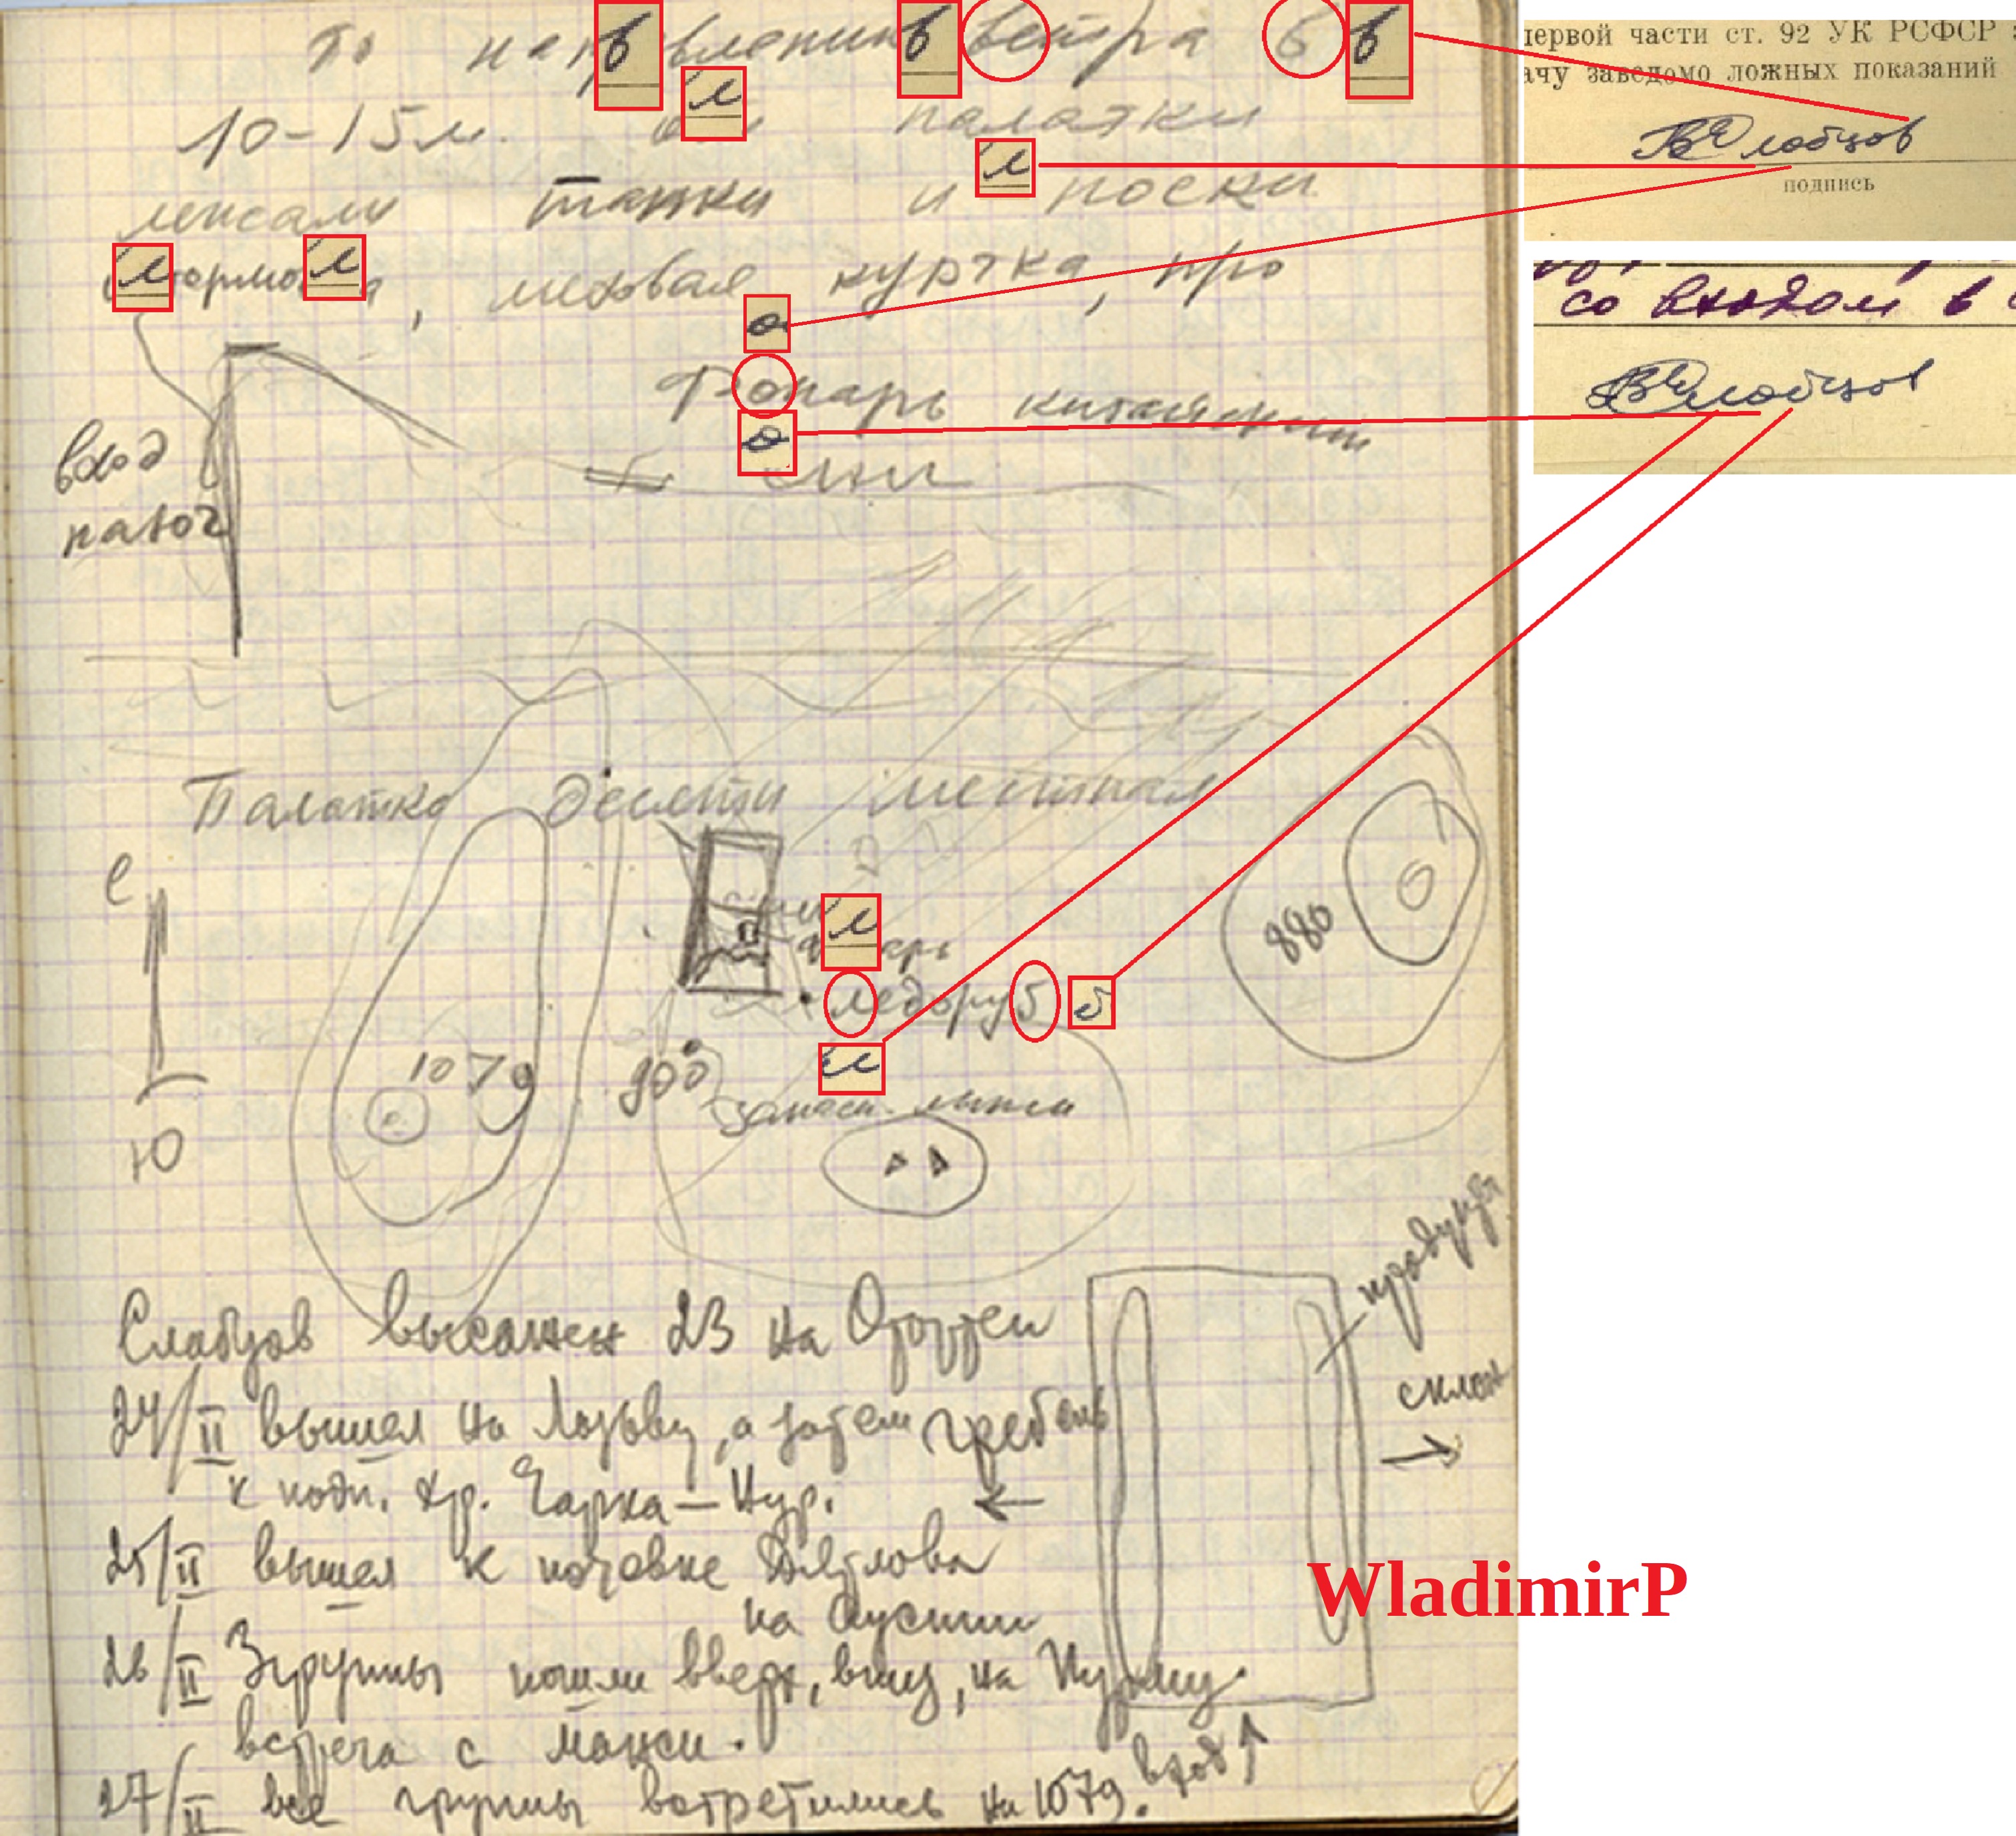 По направлению ветра в
10-15м. от палатки
лежали тапки и носки
, меховая куртка, про
Фонарь китайский
вход
палат
Палатка десяти местная
С
ледоруб
880
1079
900
запасн. лыжи
Ю
продукты
Слабцов высажен 23 на Отортен
склон
24/II вышел на Лозьву, а затем гребень
к подн. хр. Чарка-Нур.
25/II вышел к ночевке Дятлова
на Ауспии
26/II 3 группы пошли вверх, вниз, на Пурму
встреча с манси.
вход
27/II все группы встретились на 1079.
первой части ст. 92 УК РСФСР
ачу заведомо ложных показаний
ВСлобцов
подпись
со входом в
ВСлобцов
WladimirP